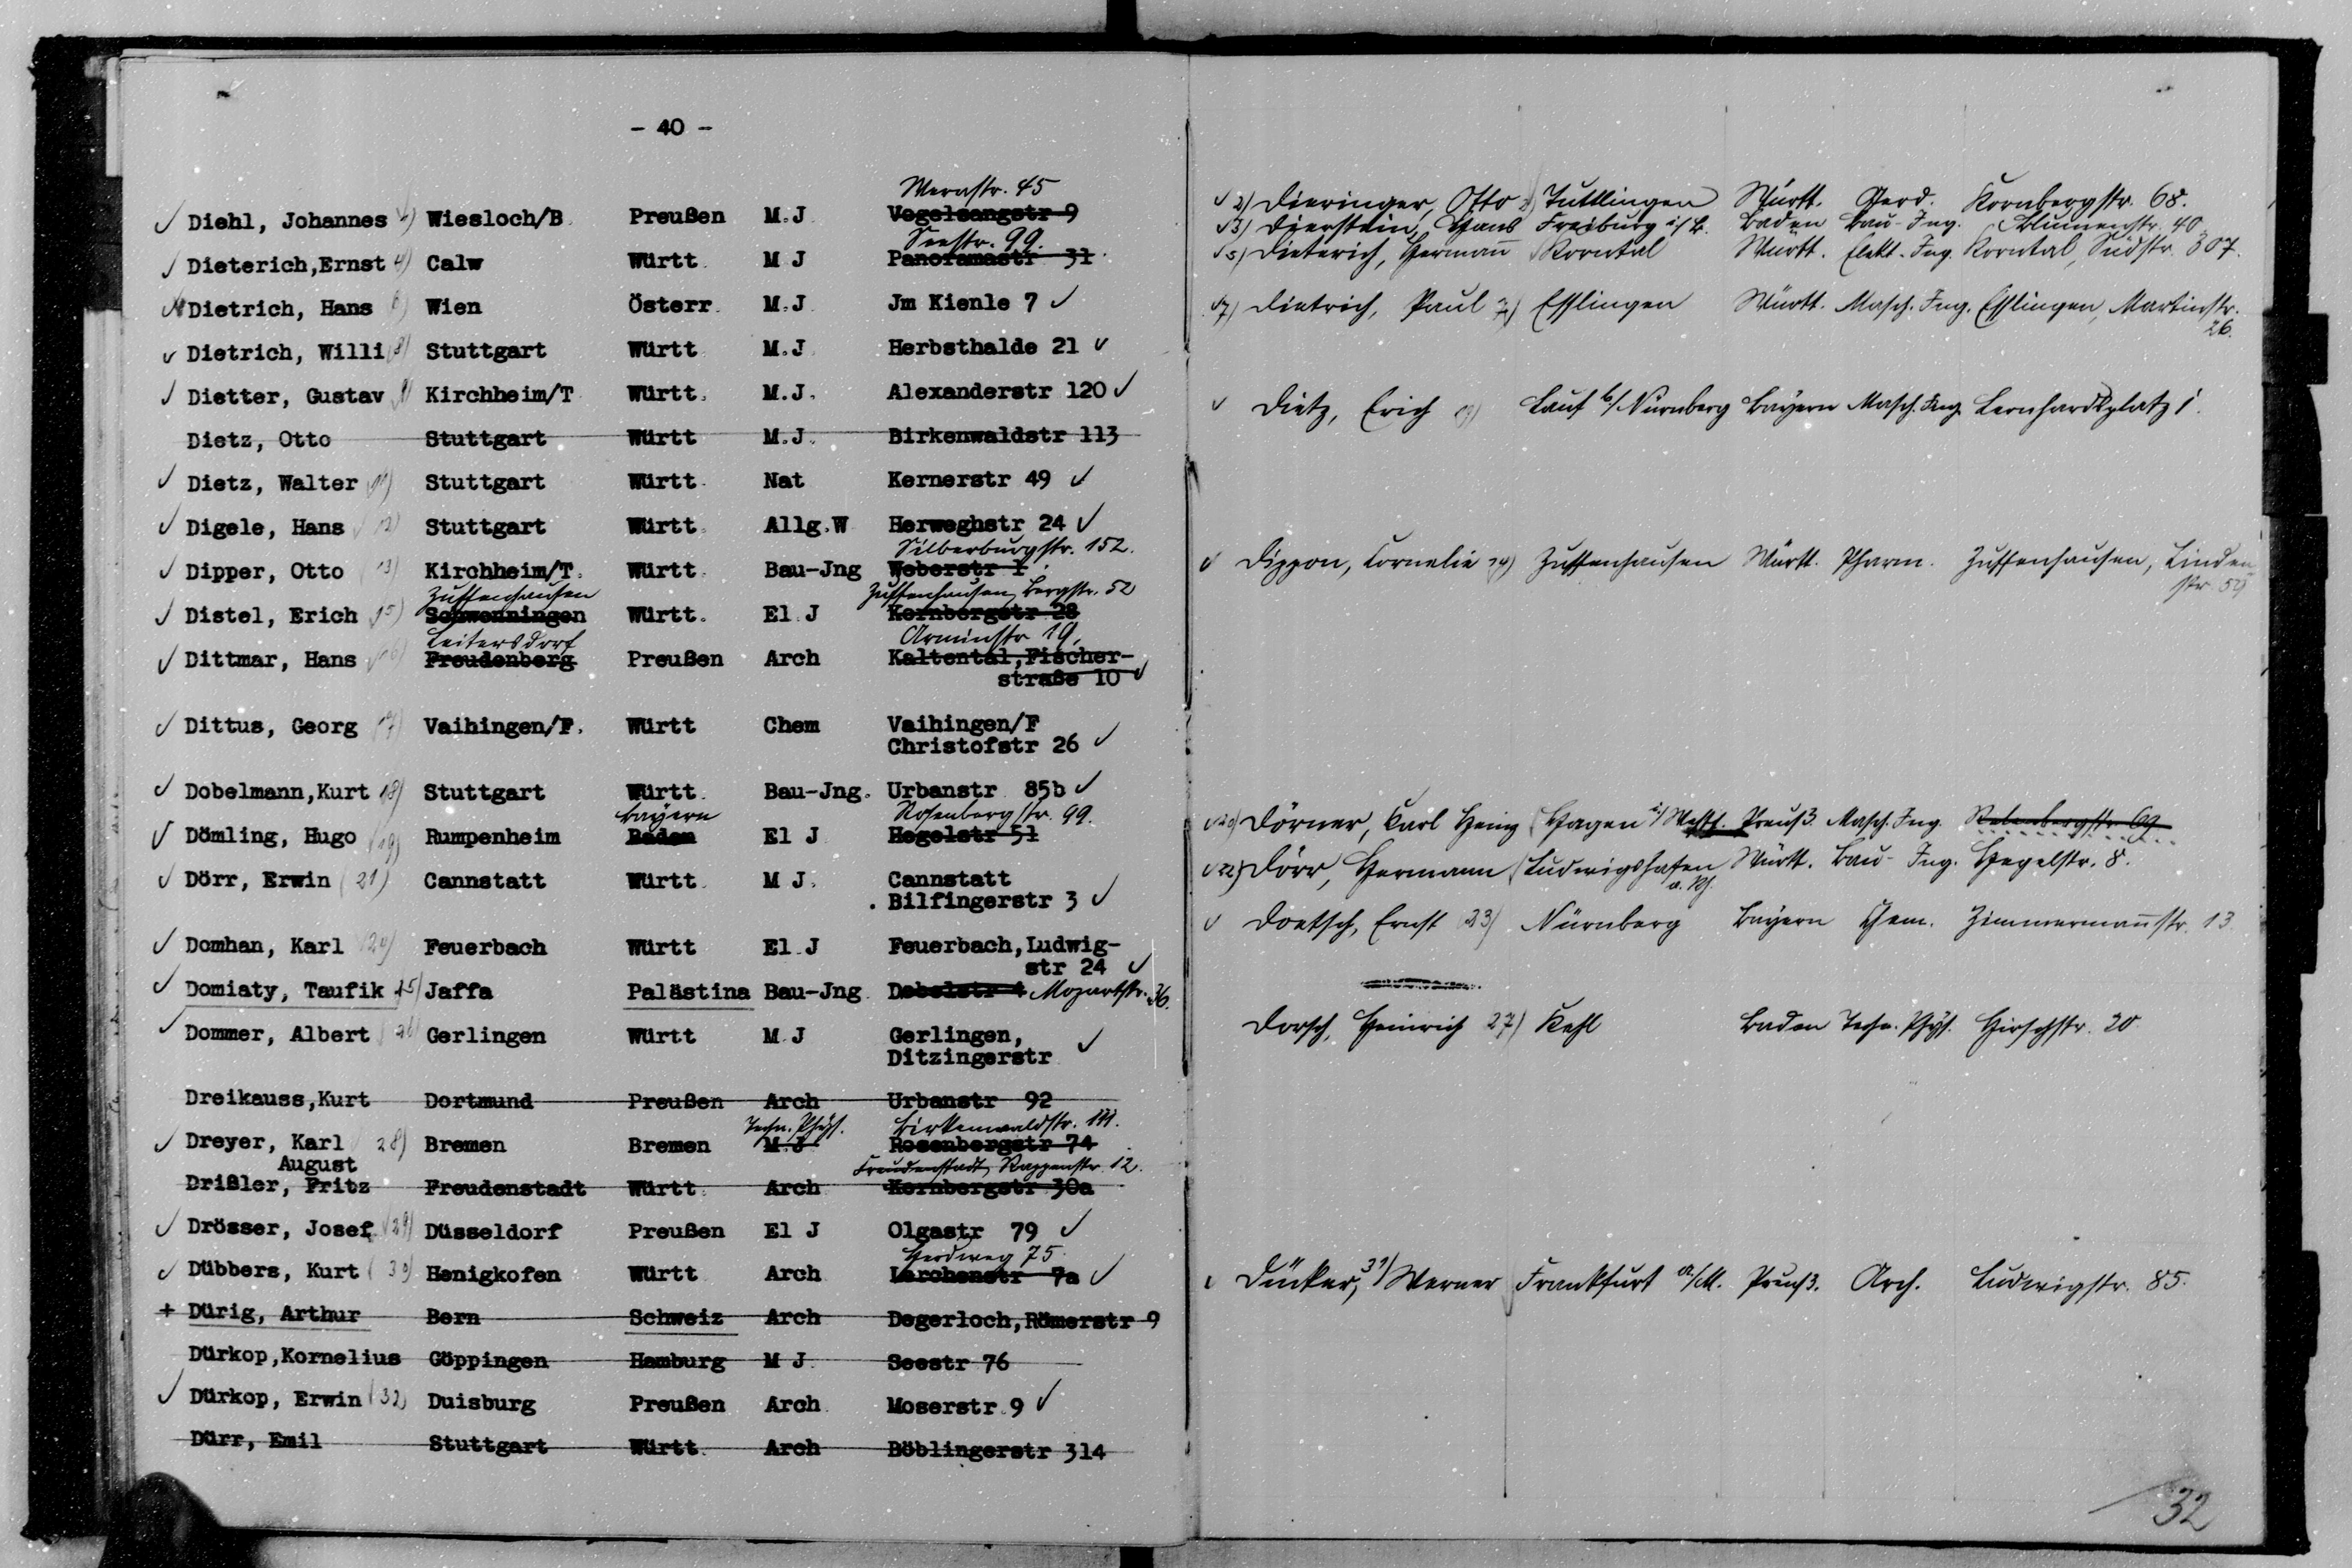 - 40 -
Wernstr. 45
Diehl, Johannes 1) Wiesloch/B. Preußen M.J. Vogelsangstr 9
Seestr. 99.
Dieterich,Ernst 4) Calw Württ. M J Panoramastr 31
Dietrich, Hans 6) Wien Österr. M.J. Jm Kienle 7
Dietrich, Willi 8) Stuttgart Württ M.J Herbsthalde 21
Dietter, Gustav 9) Kirchheim/T Württ. M.J. Alexanderstr 120
Dietz, Otto Stuttgart Württ M.J. Birkenwaldstr 113
Dietz, Walter 11) Stuttgart Württ. Nat Kernerstr 49
Digele, Hans 12) Stuttgart Württ. Allg.W Herweghstr 24
Silberburgstr. 152.
Dipper, Otto 13) Kirchheim/T. Württ. Bau-Jng Weberstr 1
Zuffenhausen Zuffenhausen, Bergstr. 52
Distel, Erich 15) Schwenningen Württ. El.J Kornbergstr 28
Leitersdorf Arminstr 19.
Dittmar, Hans 16) Freudenberg Preußen Arch Kaltental,Fischer-
straße 10
Dittus, Georg 17) Vaihingen/F. Württ Chem Vaihingen/F
Christofstr 26
Dobelmann,Kurt 18) Stuttgart Württ. Bau-Jng. Urbanstr 85b
Bayern Rosenbergstr. 99.
Dömling, Hugo 19) Rumpenheim Baden El J Hegelstr 51
Dörr, Erwin 21) Cannstatt Württ. M J. Cannstatt
Bilfingerstr 3
Domhan, Karl 24) Feuerbach Württ El.J Feuerbach,Ludwig-
str 24
Domiaty, Taufik 25) Jaffa Palästina Bau-Jng. Dobelstr 4 Mozartstr. 36.
Dommer, Albert 26) Gerlingen Württ M.J Gerlingen,
Ditzingerstr
Dreikauss,Kurt Dortmund Preußen Arch Urbanstr 92
Techn. Phys. Birkenwaldstr. 111.
Dreyer, Karl 28) Bremen Bremen M.J Rosenbergstr 74
August Freudenstadt, Rappenstr. 12.
Drißler, Fritz Freudenstadt Württ. Arch Kornbergstr 30a
Drösser, Josef 29) Düsseldorf Preußen El J Olgastr 79
Herdweg 75.
Dübbers, Kurt 30) Henigkofen Württ Arch Lerchenstr 7a
+ Dürig, Arthur Bern Schweiz Arch Degerloch,Römerstr 9
Dürkop,Kornelius Göppingen Hamburg M J. Seestr 76
Dürkop, Erwin 32) Duisburg Preußen Arch. Moserstr.9
Dürr, Emil Stuttgart Württ. Arch Böblingerstr 314
2) Dieringer, Otto Tuttlingen Württ. Kornbergstr. 68.
3) Dierstein, Hans Freiburg i/B. Baden Bau-Ing. Blumenstr. 40
5) Dieterich, Hermann Korntal Württ. Elekt.-Ing. Korntal, Südstr. 307.
7) Dietrich, Paul Esslingen Württ. Masch. Ing. Esslingen, Martinstr.
26.
Dietz, Erich 10) Lauf b/Nürnberg Bayern Masch. Ing. Leonhardsplatz 1.
Dippon, Cornelie 14) Zuffenhausen Württ. Pharm. Zuffenhausen, Linden
str 59
20) Dörner, Karl Heinz Hagen i/Westf. Preuß. Masch. Ing. Rebenbergstr. 69
22) Dörr, Hermann Ludwigshafen Württ. Bau-Ing. Hegelstr. 8.
a. Rh.
Doetsch, Ernst 23) Nürnberg Bayern Chem. Zimmermannstr. 13
Dorsch, Heinrich 27) Kehl Baden Techn. Phys. Hirschstr. 20
Dücker, 31) Werner Frankfurt a/M. Preuß. Arch. Ludwigstr. 85.
32